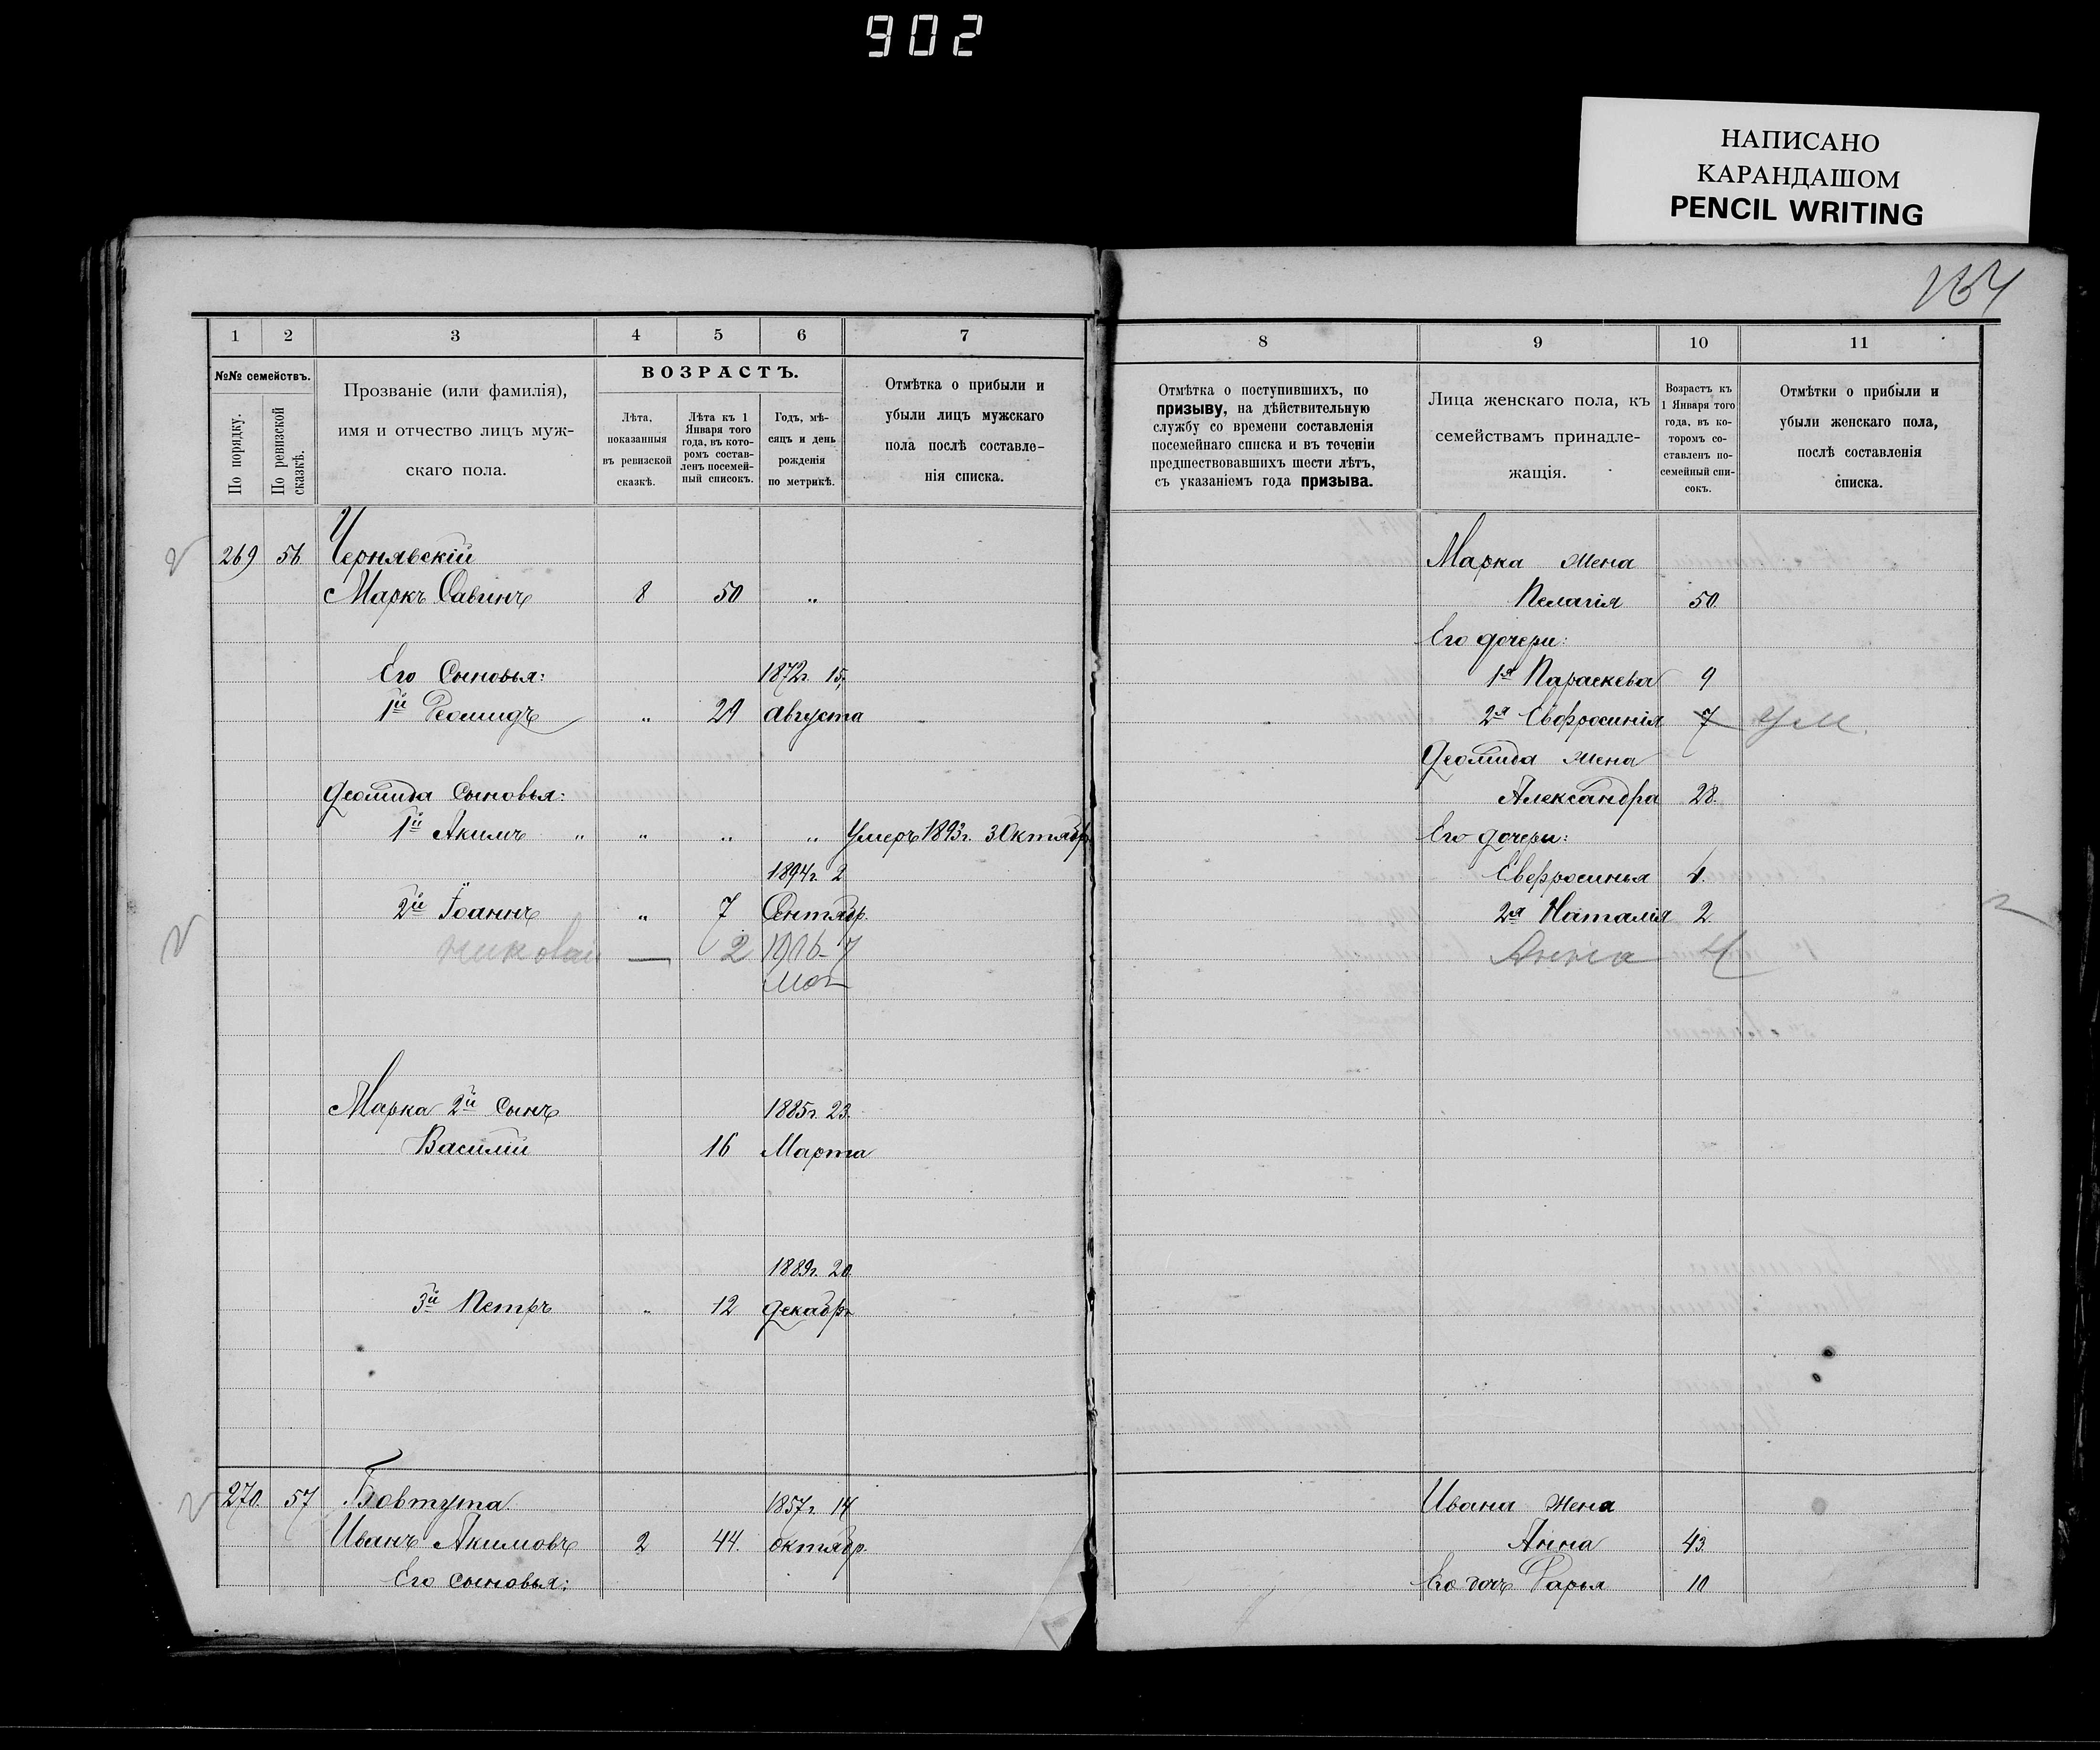 902
НАПИСАНО
КАРАНДАШОМ
PENCIL WRITING
164
1 2 3 4 5 6 7
№№ семействъ.
По порядку.
По ревизской сказкѣ.
Прозваніе (или фамилія),
имя и отчество лицъ муж-
скаго пола.
ВОЗРАСТЪ.
Лѣта,
показанныя
въ ревизской
сказкѣ.
Лѣта къ 1
Января того
года, въ кото-
ромъ состав-
ленъ посемей-
ный списокъ.
Годъ, мѣ-
сяцъ и день
рожденія
по метрикѣ.
Отмѣтка о прибыли и
убыли лицъ мужскаго
пола послѣ составле-
нія списка.
269 56 Чернявскій
Маркъ Савинъ 8 50 "
Его Сыновья: 1872г. 15,
1й Феомидъ " 29 Августа
Феомида Сыновья:
1й Акимъ " " " " Умеръ 1893г. 3 Октябр.
1894г. 2
2й Іоаннъ " 7 Сентябр.
Николай — 2 1906-7
мая
Марка 2й Сынъ 1885г. 23.
Василій 16 Марта
1889г. 20
3й Петръ " 12 Декабр.
270 57 Бовтута 1857г. 14
Иванъ Акимовъ 2 44. октябр.
Его Сыновья:
8 9 10 11
Отмѣтка о поступившихъ, по
призыву, на дѣйствительную
службу со времени составленія
посемейнаго списка и въ теченіи
предшествовавшихъ шести лѣтъ,
съ указаніемъ года призыва.
Лица женскаго пола, къ
семействамъ принадле-
жащія.
Возрастъ къ
1 Января того
года, въ ко-
торомъ со-
ставленъ по-
семейный спи-
сокъ.
Отмѣтки о прибыли и
убыли женскаго пола,
послѣ составленія
списка.
Марка жена
Пелагія 50.
Его дочери:
1я Параскева 9
2я Евфросинія 7 Ум.
Феомида жена
Александра 28.
Его дочери:
Евфросинья 4.
2я Наталія 2
Анна 4
Ивана жена
Анна 43
Его дочь Дарья 10